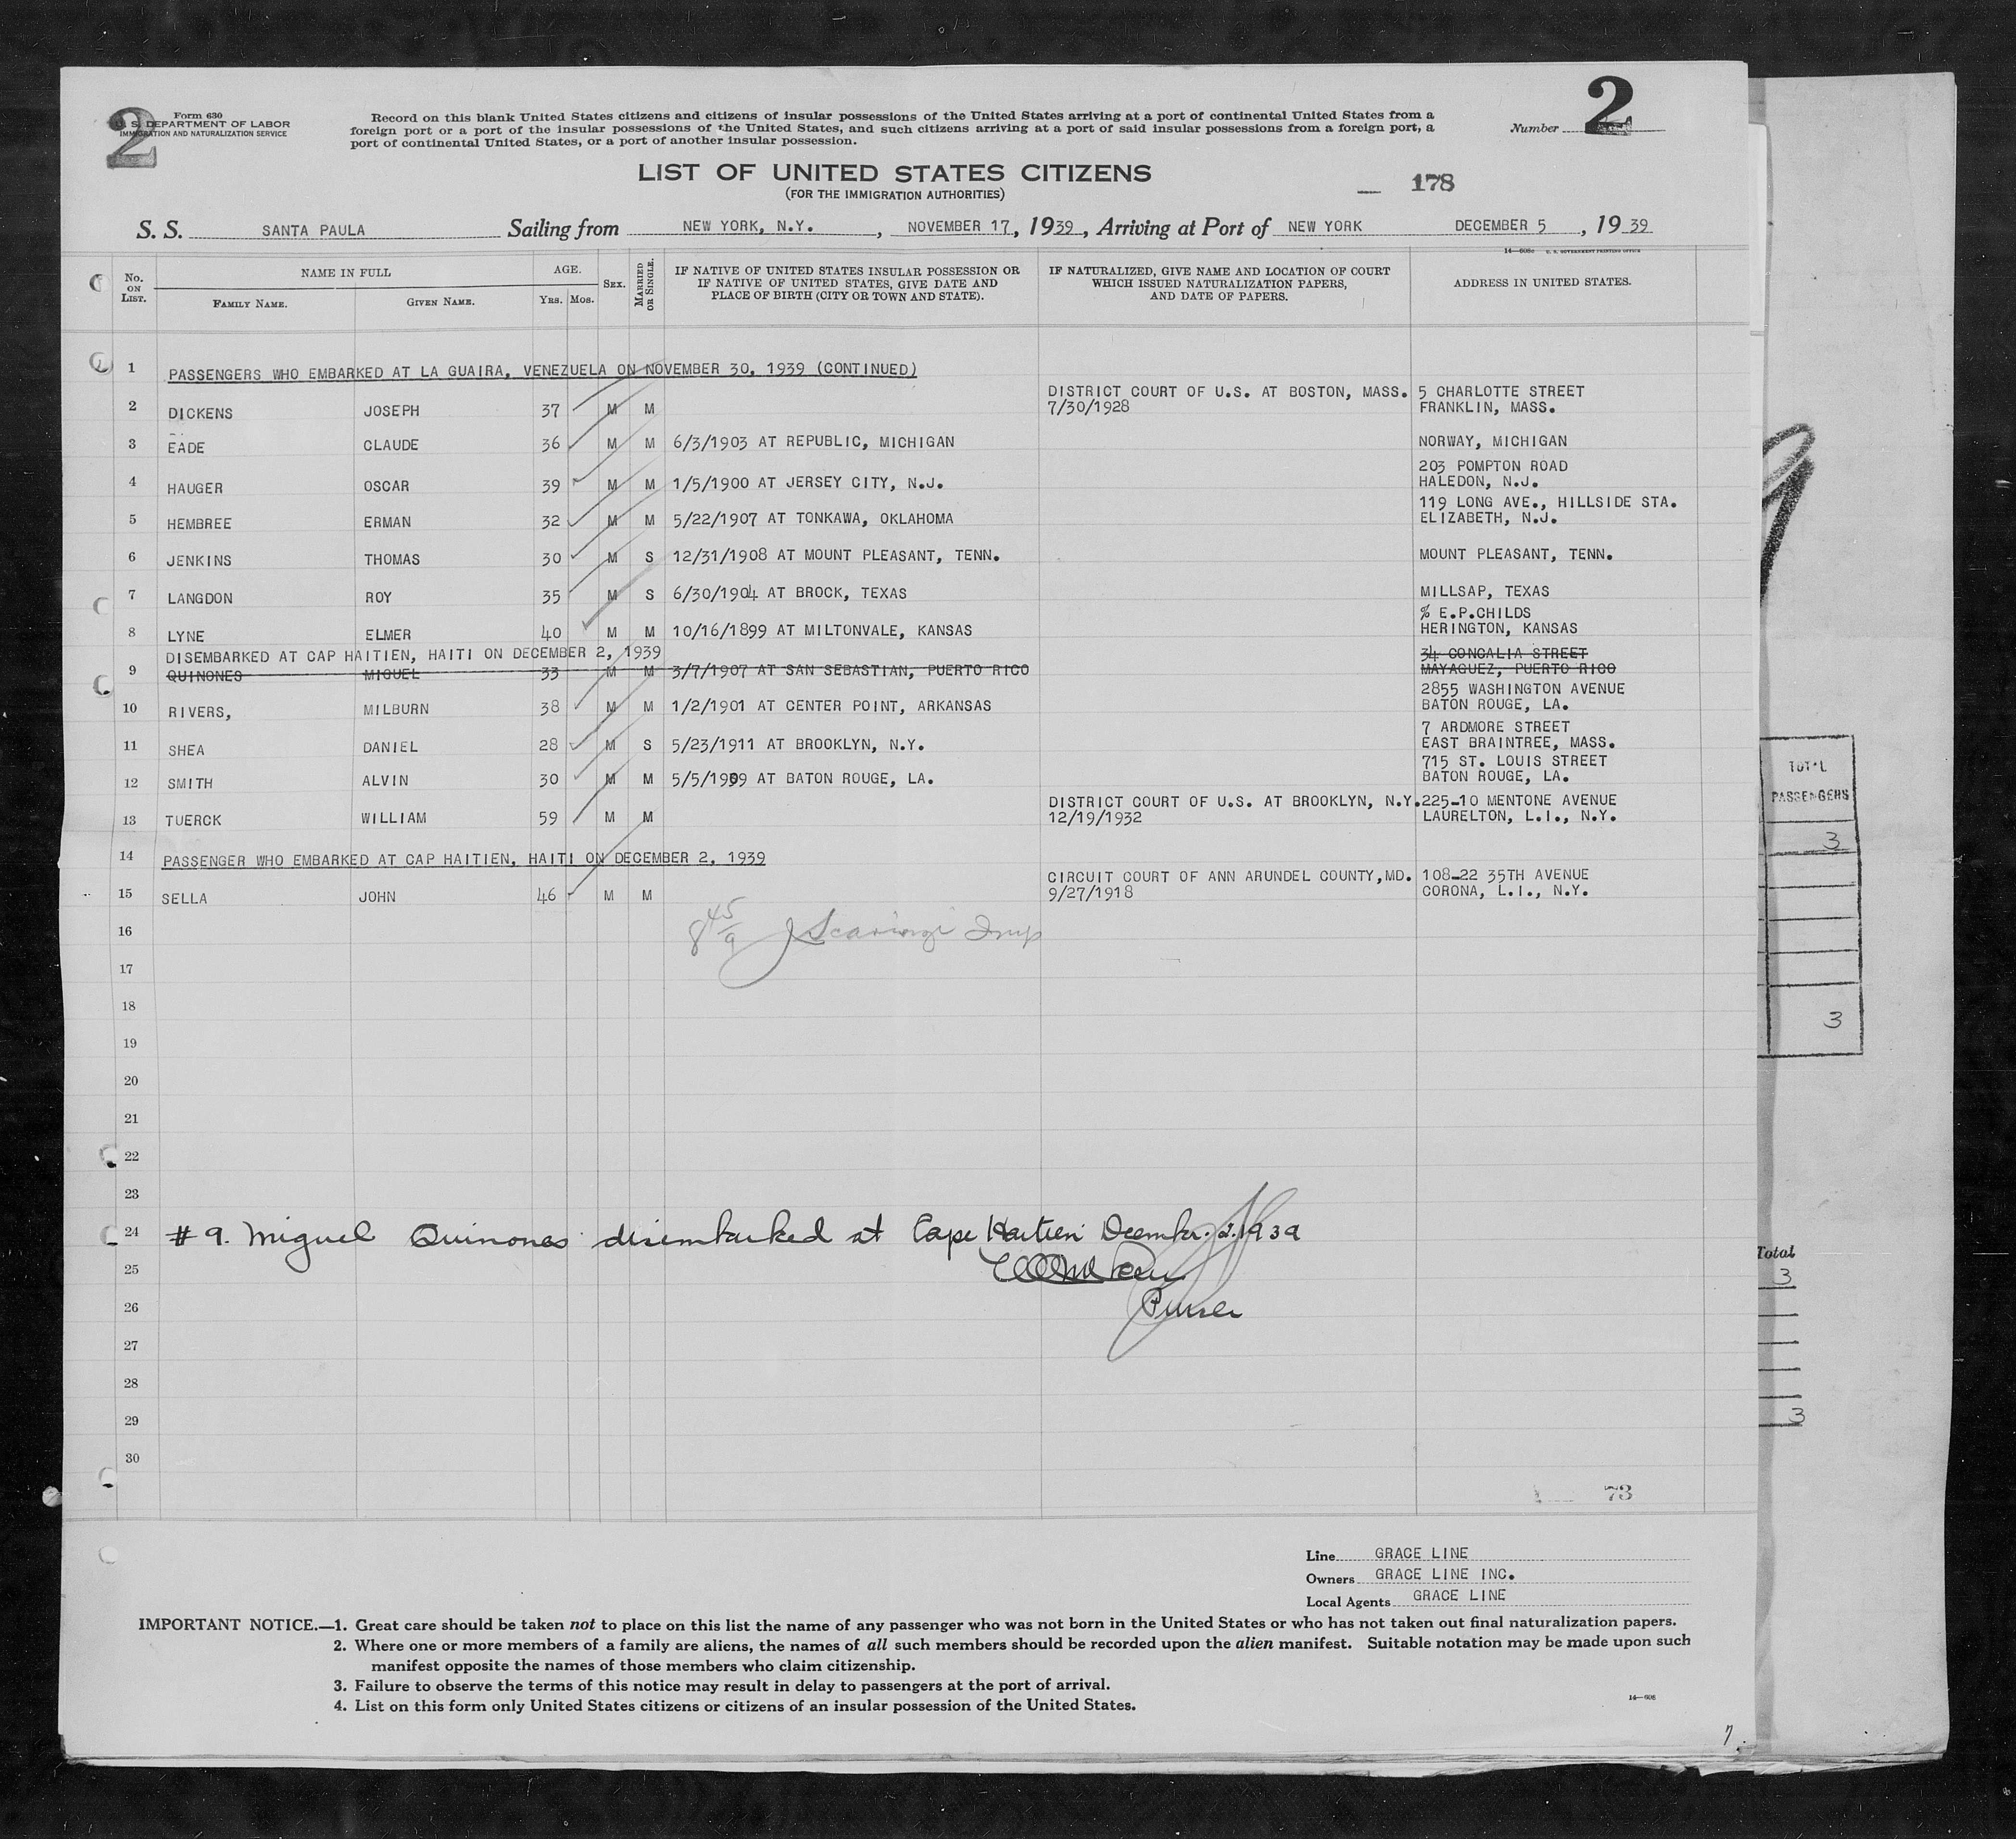 2
Form 630
U. S. DEPARTMENT OF LABOR
IMMIGRATION AND NATURALIZATION SERVICE
Record on this blank United States citizens and citizens of insular possessions of the United States arriving at a port of continental United States from a
foreign port or a port of the insular possessions of the United States, and such citizens arriving at a port of said insular possessions from a foreign port, a
port of continental United States, or a port of another insular possession.
Number 2
LIST OF UNITED STATES CITIZENS
(FOR THE IMMIGRATION AUTHORITIES)
178
S. S. SANTA PAULA Sailing from NEW YORK, N.Y. , NOVEMBER 17, 1939, Arriving at Port of NEW YORK DECEMBER 5 , 19 39
14—608c U. S. GOVERNMENT PRINTING OFFICE
No. ON LIST. NAME IN FULL AGE. SEX. MARRIED OR SINGLE. IF NATIVE OF UNITED STATES INSULAR POSSESSION OR IF NATIVE OF UNITED STATES, GIVE DATE AND PLACE OF BIRTH (CITY OR TOWN AND STATE). IF NATURALIZED, GIVE NAME AND LOCATION OF COURT WHICH ISSUED NATURALIZATION PAPERS, AND DATE OF PAPERS. ADDRESS IN UNITED STATES.
FAMILY NAME. GIVEN NAME. YRS. MOS.
1 PASSENGERS WHO EMBARKED AT LA GUAIRA, VENEZUELA ON NOVEMBER 30, 1939 (CONTINUED)
2 DICKENS JOSEPH 37 M M DISTRICT COURT OF U.S. AT BOSTON, MASS. 7/30/1928 5 CHARLOTTE STREET FRANKLIN, MASS.
3 EADE CLAUDE 36 M M 6/3/1903 AT REPUBLIC, MICHIGAN NORWAY, MICHIGAN
4 HAUGER OSCAR 39 M M 1/5/1900 AT JERSEY CITY, N.J. 203 POMPTON ROAD HALEDON, N.J.
5 HEMBREE ERMAN 32 M M 5/22/1907 AT TONKAWA, OKLAHOMA 119 LONG AVE., HILLSIDE STA. ELIZABETH, N.J.
6 JENKINS THOMAS 30 M S 12/31/1908 AT MOUNT PLEASANT, TENN. MOUNT PLEASANT, TENN.
7 LANGDON ROY 35 M S 6/30/1904 AT BROCK, TEXAS MILLSAP, TEXAS
8 LYNE ELMER 40 M M 10/16/1899 AT MILTONVALE, KANSAS % E.P.CHILDS HERINGTON, KANSAS
DISEMBARKED AT CAP HAITIEN, HAITI ON DECEMBER 2, 1939
9 QUINONES MIGUEL 33 M M 3/7/1907 AT SAN SEBASTIAN, PUERTO RICO 34 CONCALIA STREET MAYAGUEZ, PUERTO RICO
10 RIVERS, MILBURN 38 M M 1/2/1901 AT CENTER POINT, ARKANSAS 2855 WASHINGTON AVENUE BATON ROUGE, LA.
11 SHEA DANIEL 28 M S 5/23/1911 AT BROOKLYN, N.Y. 7 ARDMORE STREET EAST BRAINTREE, MASS.
12 SMITH ALVIN 30 M M 5/5/1909 AT BATON ROUGE, LA. 715 ST. LOUIS STREET BATON ROUGE, LA.
13 TUERCK WILLIAM 59 M M DISTRICT COURT OF U.S. AT BROOKLYN, N.Y. 12/19/1932 225-10 MENTONE AVENUE LAURELTON, L.I., N.Y.
14 PASSENGER WHO EMBARKED AT CAP HAITIEN, HAITI ON DECEMBER 2, 1939
15 SELLA JOHN 46 M M CIRCUIT COURT OF ANN ARUNDEL COUNTY,MD. 9/27/1918 108-22 35TH AVENUE CORONA, L.I., N.Y.
16
17
18
19
20
21
22
23
24 # 9. Miguel Quinones disembarked at Cape Haitien Decmbr. 2. 1939
25
26 Purser
27
28
29
30
73
Line GRACE LINE
Owners GRACE LINE INC.
Local Agents GRACE LINE
IMPORTANT NOTICE.—1. Great care should be taken not to place on this list the name of any passenger who was not born in the United States or who has not taken out final naturalization papers.
2. Where one or more members of a family are aliens, the names of all such members should be recorded upon the alien manifest. Suitable notation may be made upon such
manifest opposite the names of those members who claim citizenship.
3. Failure to observe the terms of this notice may result in delay to passengers at the port of arrival.
4. List on this form only United States citizens or citizens of an insular possession of the United States.
14—608
7
TOTAL
PASSENGERS
3
3
Total
3
3